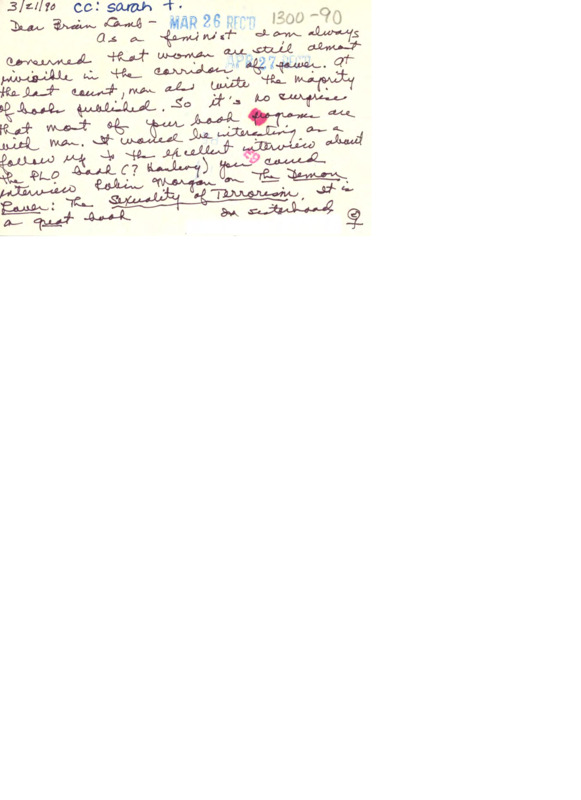 3/21/90 cc: sarah t.
MAR 26 REC'D 1300-90
Dear Brain Lamb -
As a feminist I am always
concerned that woman are still almost
APR 27 REC'D
invisible in the corridor off power. At
the last count, man also write the majority
of books published. So it's no surprise
that most of your book programs are
with man. It would be interesting as a
follow up to the excellent interview about
the PLO book (? Harlevy) you could
interview Robin Morgan on The Demon
Lover: The Sexuality of Terrorism. It is
a great book In sisterhood